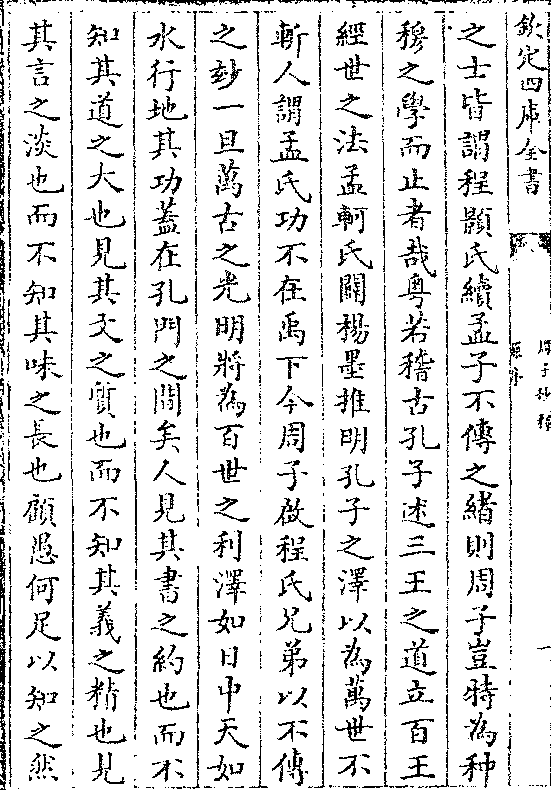 欽定四庫全書
周子抄釋
之士皆謂程顥氏續孟子不傳之緒則周子豈特為种
穆之學而止者哉粤若稽古孔子述三王之道立百王
經世之法孟軻氏闢楊墨推明孔子之澤以為萬世不
斬人謂孟氏功不在禹下今周子啟程氏兄弟以不傳
之妙一旦萬古之光明將為百世之利澤如日中天如
水行地其功蓋在孔門之間矣人見其書之約也而不
知其道之大也見其文之質也而不知其義之精也見
其言之淡也而不知其味之長也顧愚何足以知之然